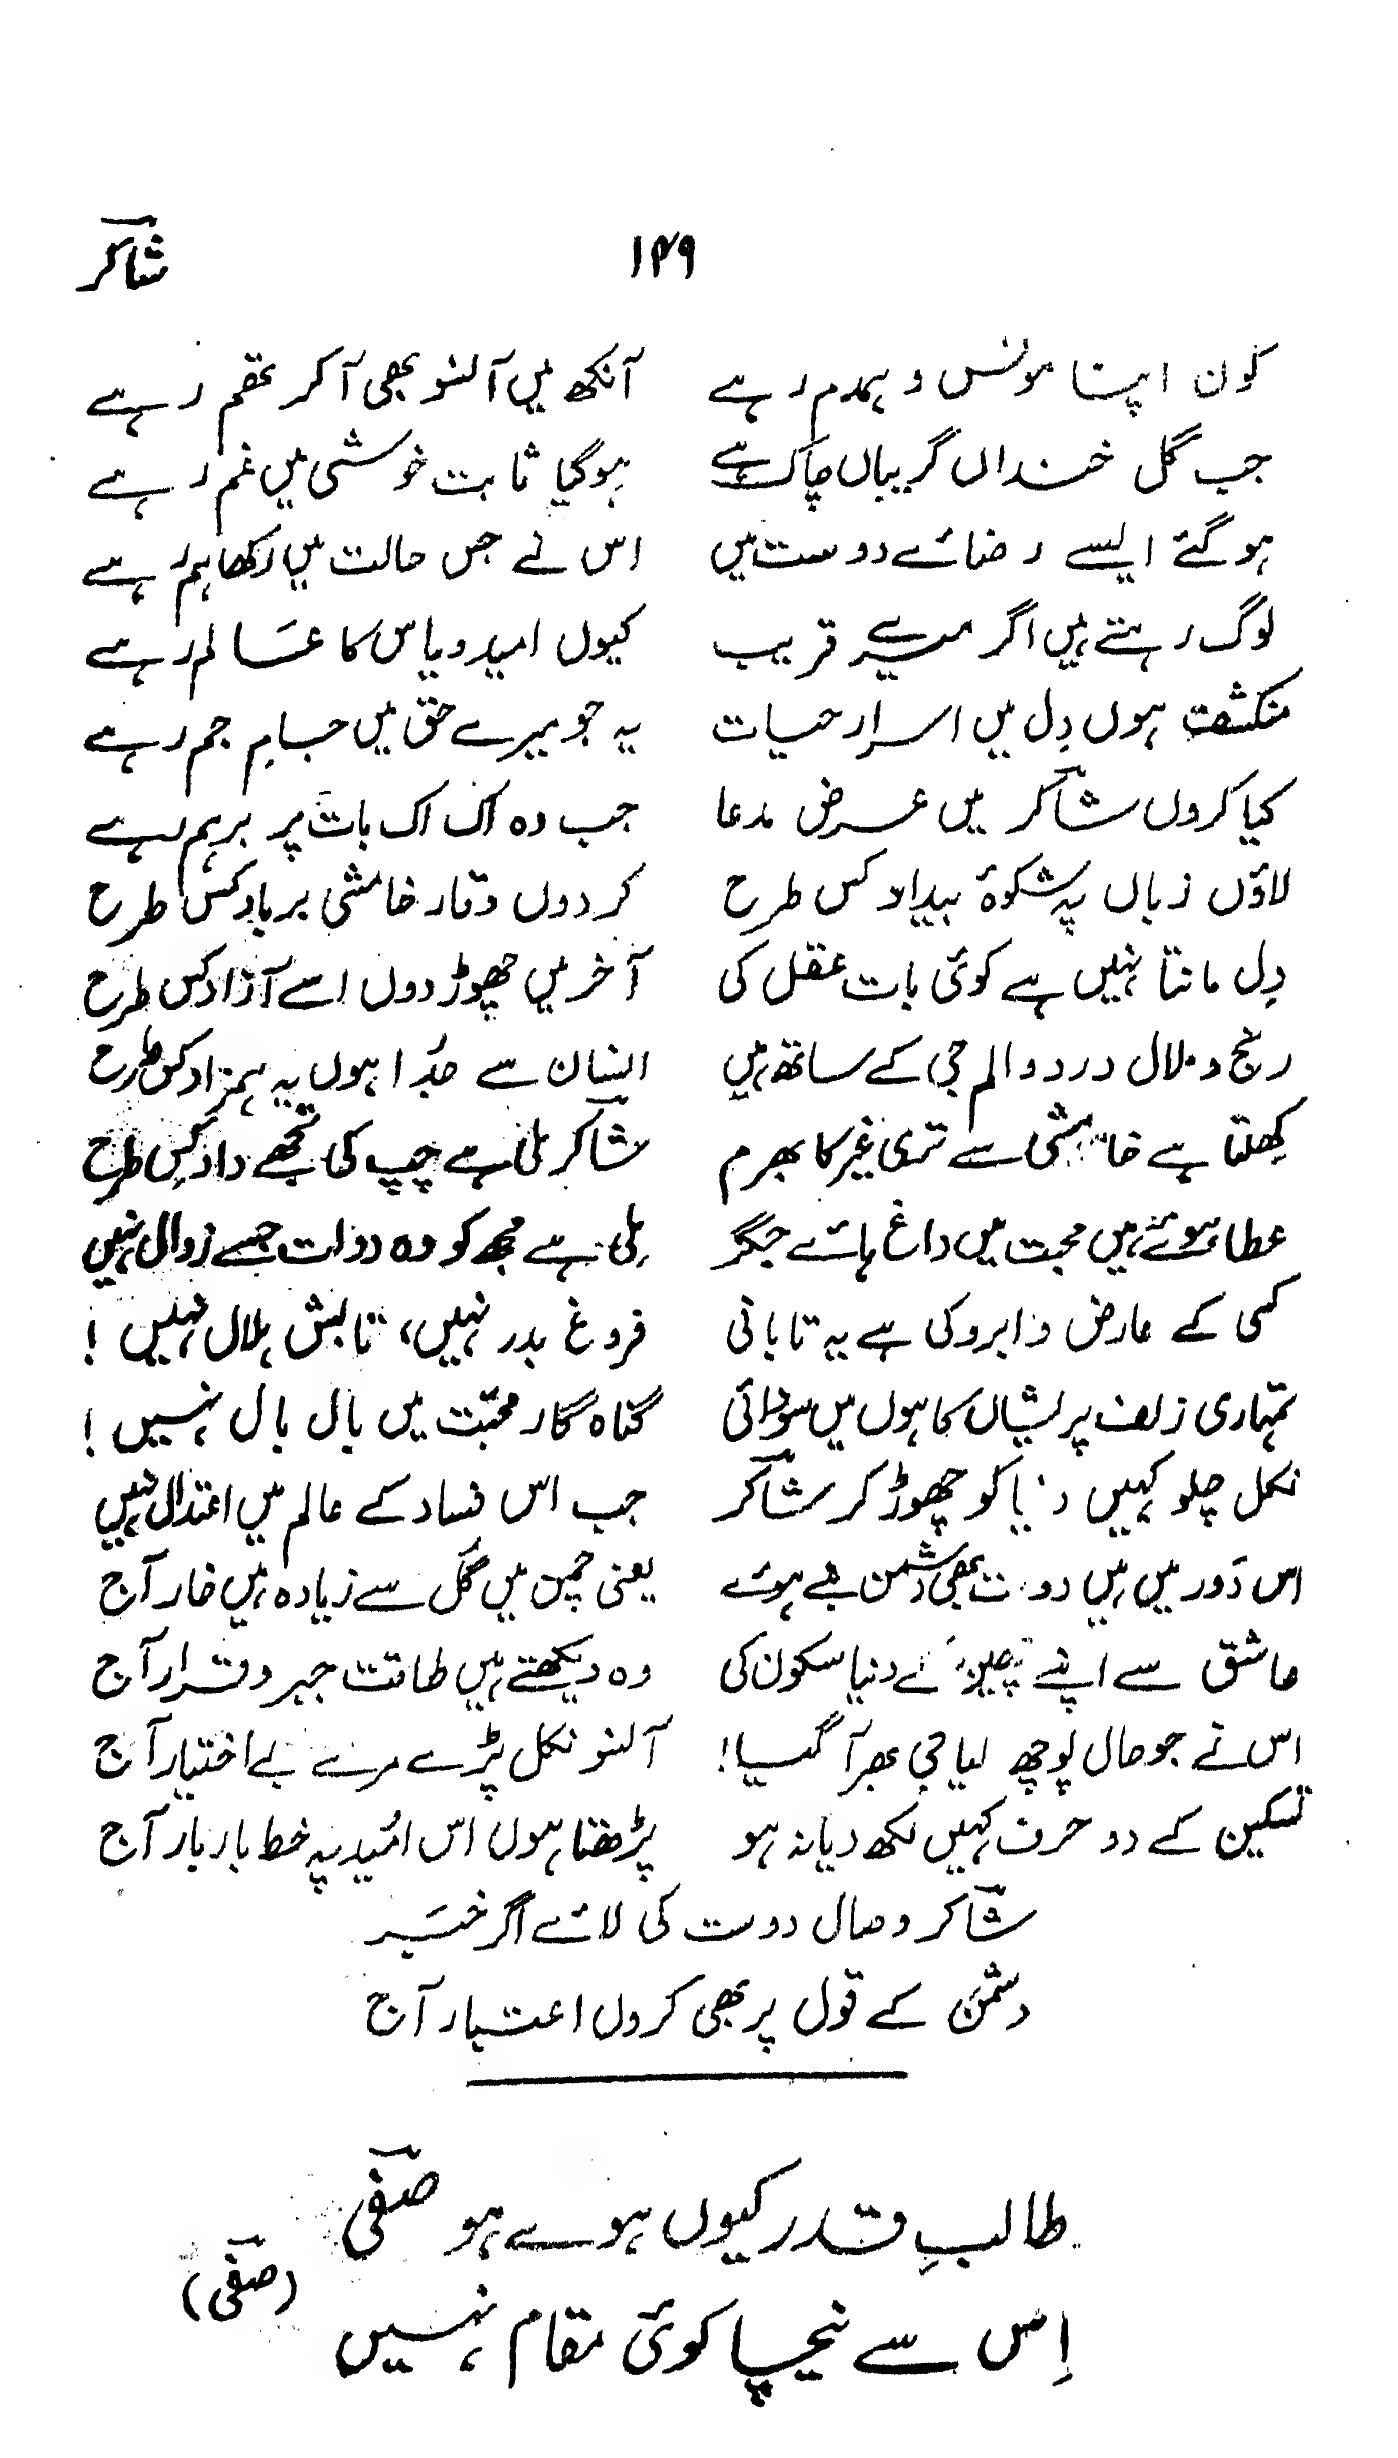 شاکر ۱۴۹
کون اپنا مونس و ہمدم رہے آنکھ میں آنسو بھی آکر تھم رہے
جب گل خنداں گریباں چاک ہے ہوگیا ثابت خوشی میں غم رہے
ہوگئے ایسے رضائے دوست میں اس نے جس حالت میں رکھا ہم رہے
لوگ رہتے ہیں اگر میرے قریب کیوں امید و یاس کا عالم رہے
منکشف ہوں دِل میں اسرار حیات یہ جو میرے حق میں جامِ جم رہے
کیا کروں شاکر میں عرض مدعا جب وہ اک اک بات پر برہم رہے
لاؤں زباں پہ شکوۂ بیداد کس طرح کردوں وقار خامشی برباد کس طرح
دِل مانتا نہیں ہے کوئی بات عقل کی آخر میں چھوڑ دوں اسے آزاد کس طرح
رنج و ملال درد و الم جی کے ساتھ ہیں انسان سے جُدا ہوں یہ ہمزاد کس طرح
کِھلتا ہے خامشی سے تری غیر کا بھرم شاکر ملی ہے چپ کی تجھے داد کِس طرح
عطا ہوئے ہیں محبت میں داغ ہائے جگر مِلی ہے مجھ کو وہ دولت جسے زوال نہیں
کسی کے عارض و ابرو کی ہے یہ تابانی فروغ بدر نہیں، تابش ہلال نہیں !
تمہاری زلف پریشاں کا ہوں میں سودائی گناہ گار محبّت میں بال بال نہیں !
نکل چلو کہیں دنیا کو چھوڑ کر شاکر جب اس فساد کے عالم میں اعتدال نہیں
اس دَور میں ہیں دوست بھی دشمن بنے ہوئے یعنی چمن میں گُل سے زیادہ ہیں خار آج
عاشق سے اپنے چھین کے دنیا سکون کی وہ دیکھتے ہیں طاقت جبر و قرار آج
اس نے جو حال پوچھ لیا جی بھر آگیا! آنسو نکل پڑے مرے بے اختیار آج
تسکین کے دو حرف کہیں لکھ دیا نہ ہو پڑھتا ہوں اس اُمید پہ خط بار بار آج
شاکر وصال دوست کی لائے اگر خبر
دشمن کے قول پر بھی کروں اعتبار آج
طالبِ قدر کیوں ہوے ہو صفی
اِس سے نیچا کوئی مقام نہیں
(صفی)